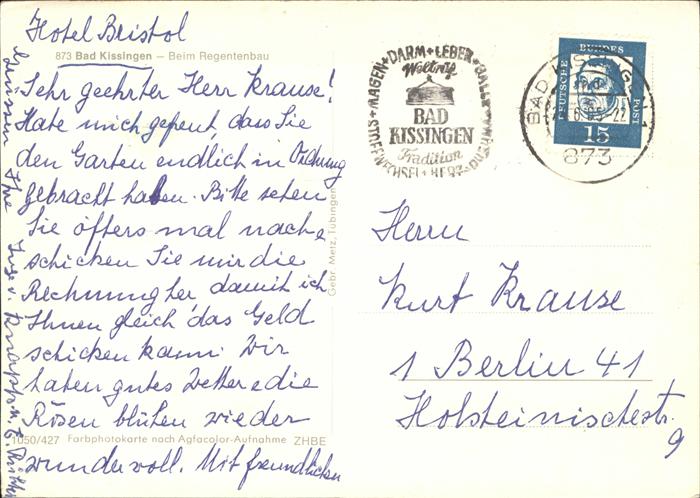 Hotel Bristol
873 Bad Kissingen – Beim Regentenbau
Sehr geehrter Herr Krause!
Habe mich gefreut, dass Sie
den Garten endlich in Ordnung
gebracht haben. Bitte sehen
Sie öfters mal nach e
schicken Sie mir die
Rechnung her damit ich
Ihnen gleich das Geld
schicken kann. Wir
haben gutes Wetter e die
Rosen blühen wieder
1050/427 Farbphotokarte nach Agfacolor-Aufnahme ZHBE
wundervoll. Mit freundlichen
Grüssen Ihre Inge v. Knapp
Gebr. Metz, Tübingen
STOFFWECHSEL + MAGEN + DARM + LEBER + GALLE
Weltruf
BAD
KISSINGEN
Tradition
HERZ
BAD KISSINGEN
-22
873
DEUTSCHE BUNDESPOST
15
Herrn
Kurt Krause
1 Berlin 41
Holsteinischestr.
9